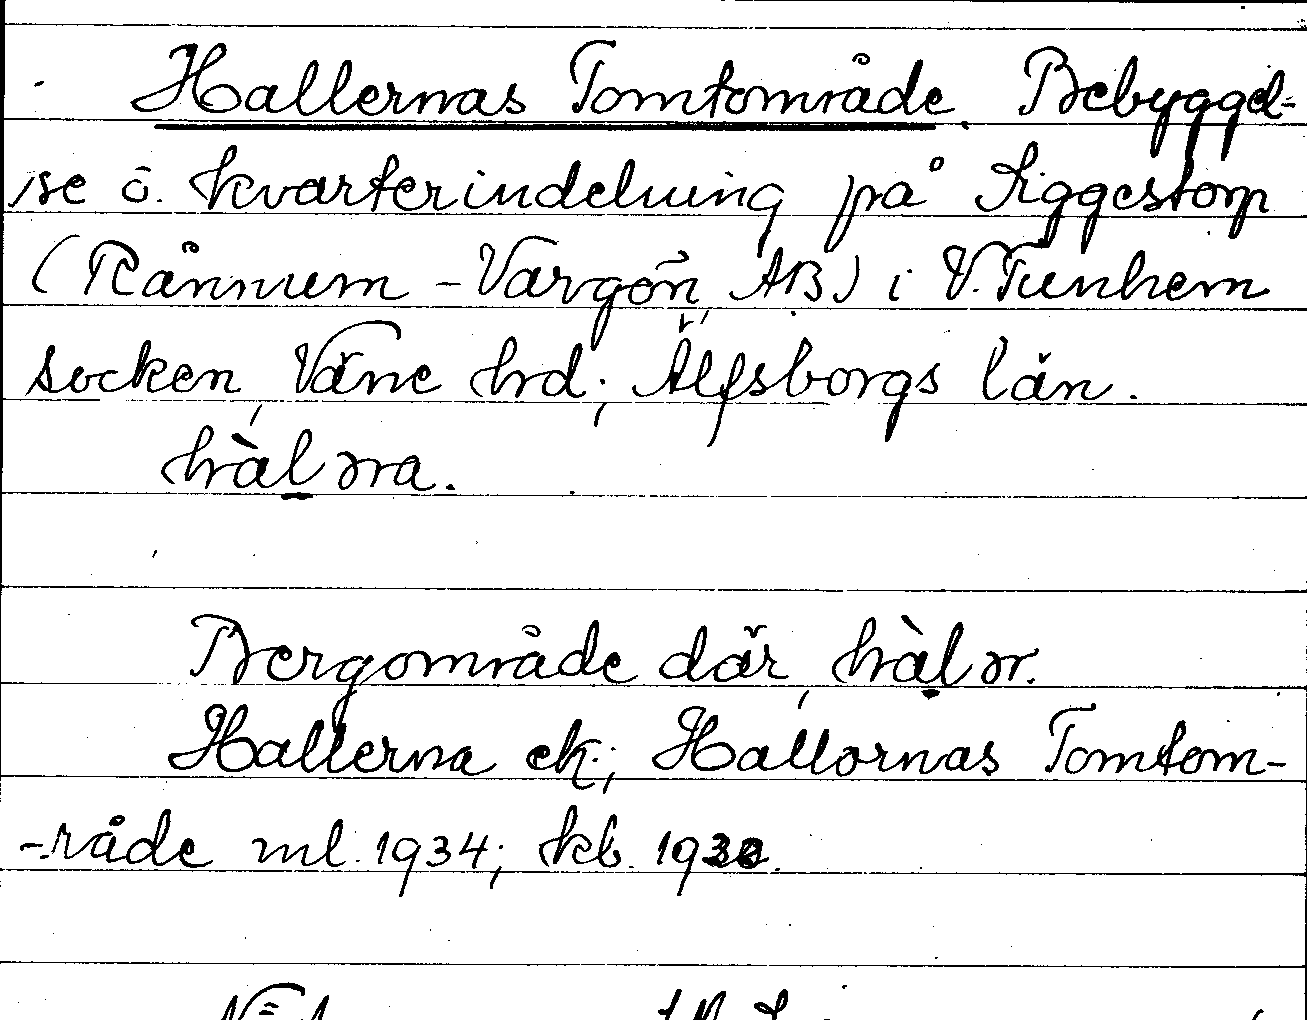 Hallernas Tomtområde. Bebyggel-
se o. kvarterindelning på Siggestorp
(Rånnum - Vargön, AB) i V. Tunhem
socken, Väne hrd; Älfsborgs län.
hàləra.
Bergområde där, hàlər.
Hallerna ek.; Hallornas Tomtom-
-råde ml. 1934; kb. 1930.